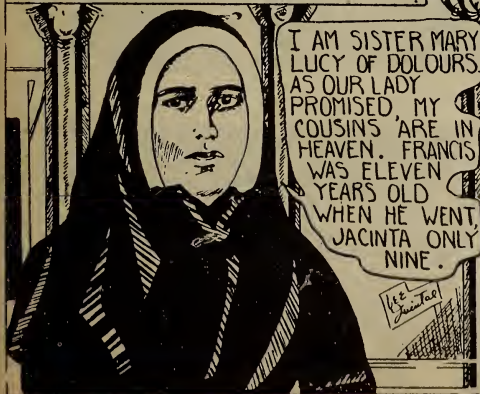 I AM SISTER MARY
LUCY OF DOLOURS.
AS OUR LADY
PROMISED, MY
COUSINS ARE IN
HEAVEN. FRANCIS
WAS ELEVEN
YEARS OLD
WHEN HE WENT,
JACINTA ONLY
NINE.